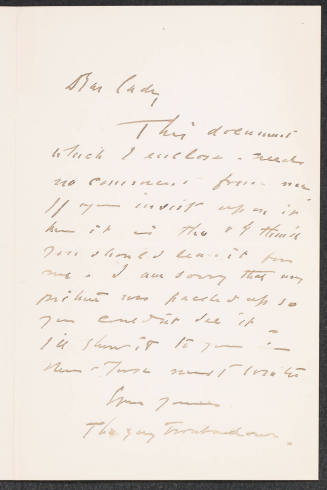 Dear Lady,
This document
which I enclose - needs
no comment from me
If you insist upon it
here it is tho' I think
you should leave it for
me. I am sorry that my
picture was packed up so
you couldn't see it -
I'll show it to you in
New
Ever yours
The gay troubadour.